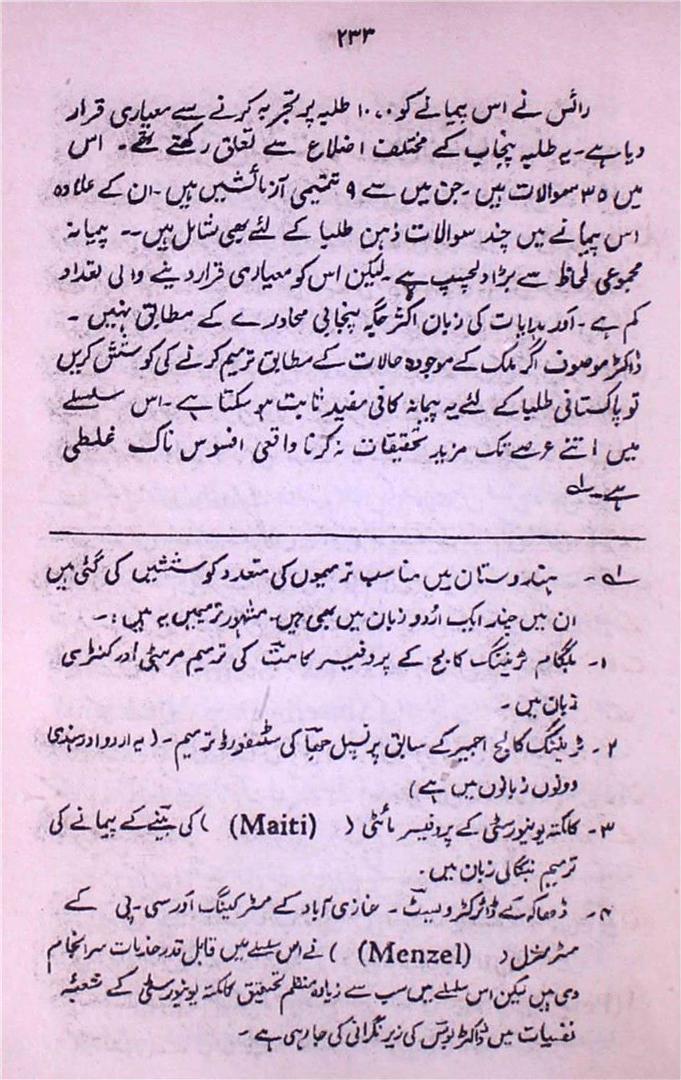 ۲۳۳
رائس نے اس پیمانے کو ۱۰۰۰ طلبہ پر تجربہ کرنے سے معیاری قرار
دیا ہے۔ یہ طلبہ پنجاب کے مختلف اضلاع سے تعلق رکھتے تھے۔ اس
میں ۳۵ سوالات ہیں۔ جن میں سے ۹ تتمیمی آزمائشیں ہیں۔ ان کے علاوہ
اس پیمانے میں چند سوالات ذہین طلبا کے لئے بھی شامل ہیں۔۔ پیمانہ
مجموعی لحاظ سے بڑا دلچسپ ہے۔ لیکن اس کو معیاری قرار دینے والی تعداد
کم ہے۔ اور ہدایات کی زبان اکثر جگہ پنجابی محاورے کے مطابق نہیں۔
ڈاکٹر موصوف اگر ملک کے موجودہ حالات کے مطابق ترمیم کرنے کی کوشش کریں
تو پاکستانی طلبا کے لئے یہ پیمانہ کافی مفید ثابت ہو سکتا ہے۔ اس سلسلے
میں اتنے عرصے تک مزید تحقیقات نہ کرنا واقعی افسوس ناک غلطی
ہے۔ ؎۱
؎۱۔ ہندوستان میں مناسب ترمیموں کی متعدد کوششیں کی گئی ہیں
ان میں چند ایک اردو زبان میں بھی ہیں۔ مشہور ترمیمیں یہ ہیں:۔
۱۔ بلگام ٹریننگ کالج کے پروفیسر کامت کی ترمیم مرہٹی اور کنڑی
زبان میں۔
۲۔ ٹریننگ کالج اجمیر کے سابق پرنسپل جھا کی سٹنفورڈ ترمیم۔ (یہ اردو اور ہندی
دونوں زبانوں میں ہے)
۳۔ کلکتہ یونیورسٹی کے پروفیسر مائٹی (Maiti) کی بینے کے پیمانے کی
ترمیم بنگالی زبان میں۔
۴۔ ڈھاکہ کے ڈائرکٹر ویسٹ۔ غازی آباد کے مسٹر کینگ اور سی۔ پی کے
مسٹر منزل (Menzel) نے اس سلسلے میں قابل قدر خدمات سرانجام
دی ہیں لیکن اس سلسلے میں سب سے زیادہ منظم تحقیق کلکتہ یونیورسٹی کے شعبۂ
نفسیات میں ڈاکٹر بوس کی زیر نگرانی کی جا رہی ہے۔